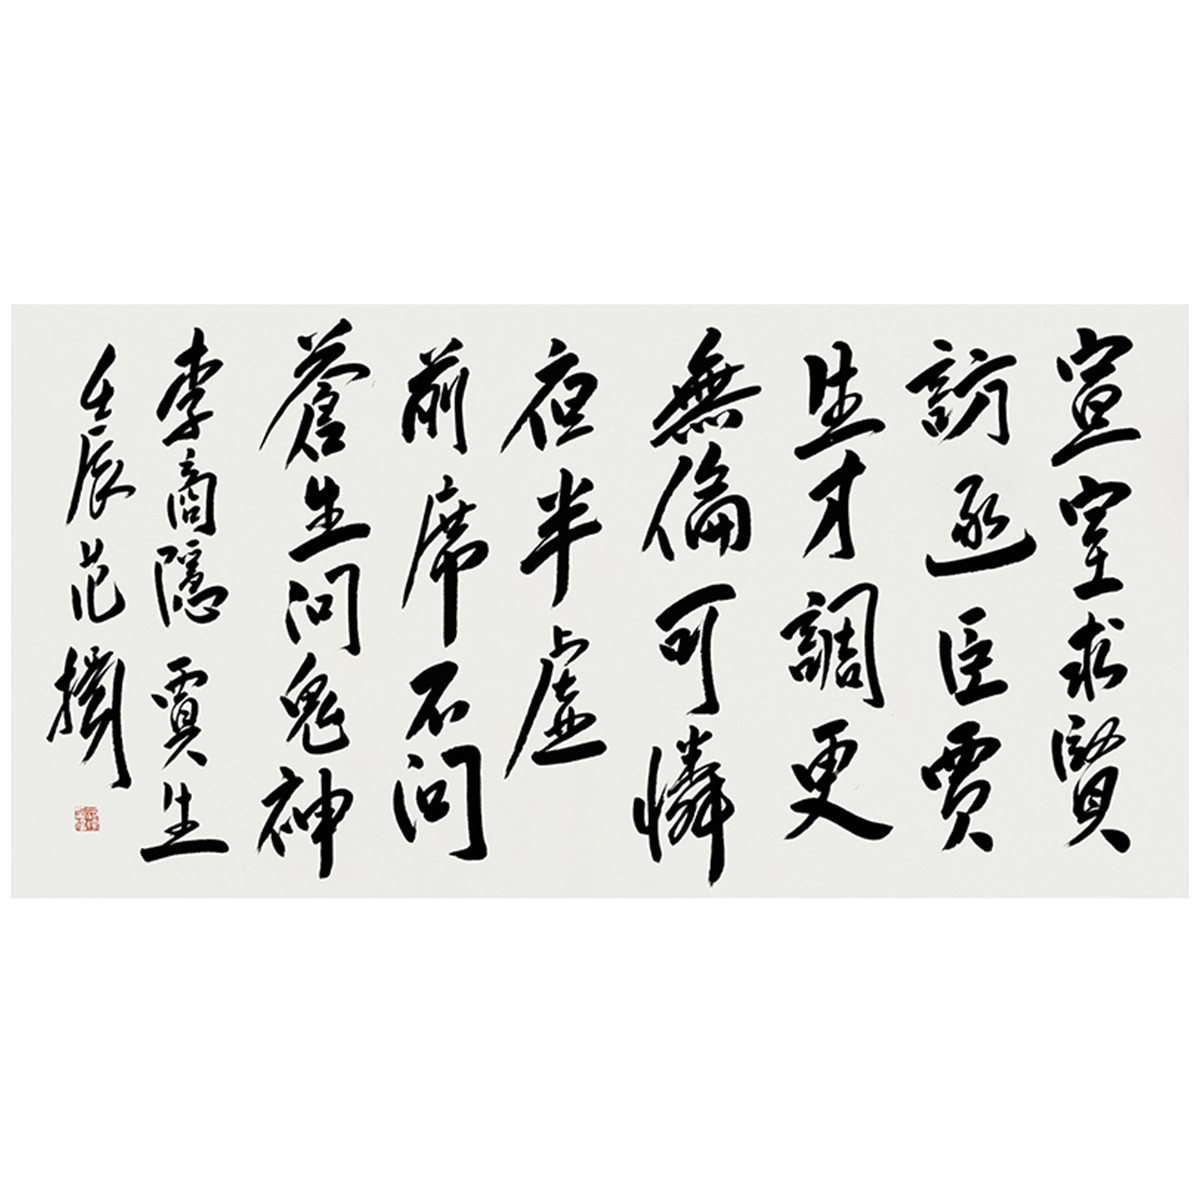 宣室求賢
訪逐臣賈
生才調更
無倫可憐
夜半虛
前席不問
蒼生問鬼神
李商隱賈生
壬辰范